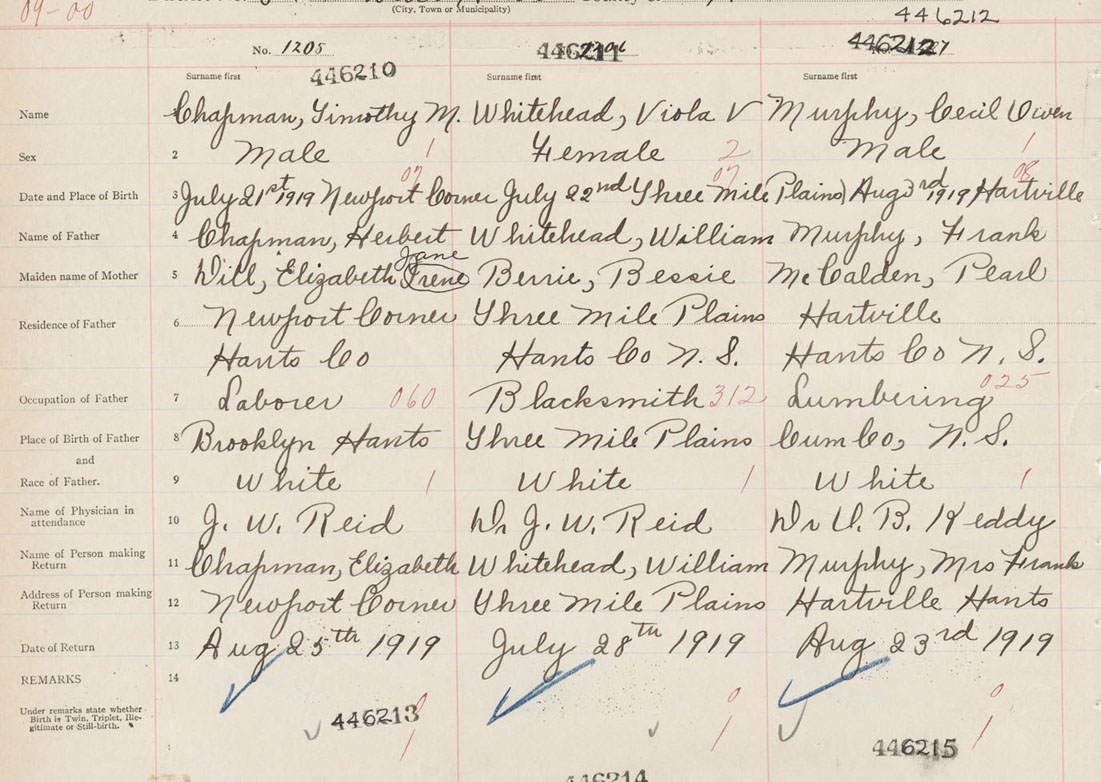 09-00
(City, Town or Municipality)
446212
No. 1205 446211 1206 446212
446210
Surname first Surname first Surname first
Name Chapman, Timothy M. Whitehead, Viola V Murphy, Cecil Owen
Sex 2 Male 1 Female 2 Male 1
07 07 08
Date and Place of Birth 3 July 21st 1919 Newport Corner July 22nd Three Mile Plains) Aug 3rd 1919 Hartville
Name of Father 4 Chapman, Herbert Whitehead, William Murphy, Frank
Jane
Maiden name of Mother 5 Dill, Elizabeth Irene Berrie, Bessie McCalden, Pearl
Residence of Father 6 Newport Corner Three Mile Plains Hartville
Hants Co Hants Co N. S. Hants Co N. S.
Occupation of Father 7 Laborer 060 Blacksmith 312 Lumbering 025
Place of Birth of Father 8 Brooklyn Hants Three Mile Plains Cum Co, N. S.
and
Race of Father. 9 White 1 White 1 White 1
Name of Physician in
attendance 10 J. W. Reid Dr J. W. Reid Dr U. B. Keddy
Name of Person making
Return 11 Chapman, Elizabeth Whitehead, William Murphy, Mrs Frank
Address of Person making
Return 12 Newport Corner Three Mile Plains Hartville Hants
Date of Return 13 Aug 25th 1919 July 28th 1919 Aug 23rd 1919
REMARKS 14
Under remarks state whether
Birth is Twin, Triplet, Ille-
gitimate or Still-birth.
0 0 0
446213 1 1 1
446215
446214